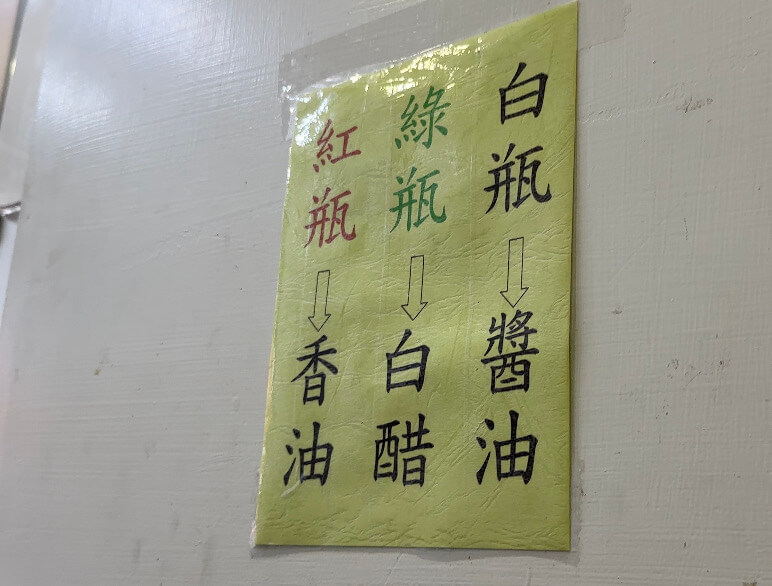 白瓶⇩醬油
綠瓶⇩白醋
紅瓶⇩香油